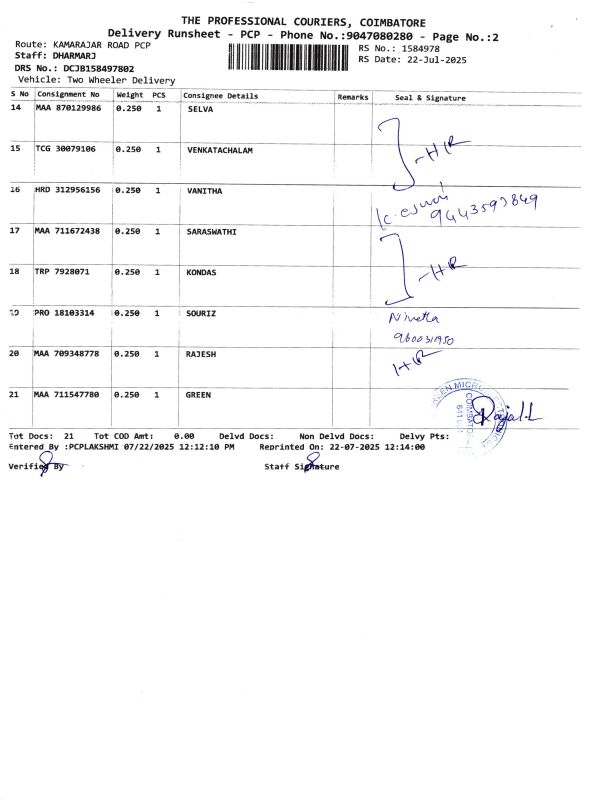 THE PROFESSIONAL COURIERS, COIMBATORE
Delivery Runsheet - PCP - Phone No.:9047080280 - Page No.:2
Route: KAMARAJAR ROAD PCP
RS No.: 1584978
Staff: DHARMARJ
RS Date: 22-Jul-2025
DRS No.: DCJB158497802
Vehicle: Two Wheeler Delivery
S No Consignment No Weight PCS Consignee Details Remarks Seal & Signature
14 MAA 870129986 0.250 1 SELVA
15 TCG 30079106 0.250 1 VENKATACHALAM
-HR
16 HRD 312956156 0.250 1 VANITHA
9443593849
17 MAA 711672438 0.250 1 SARASWATHI
18 TRP 7928071 0.250 1 KONDAS
-HR
19 PRO 18103314 0.250 1 SOURIZ
20 MAA 709348778 0.250 1 RAJESH
HR
21 MAA 711547780 0.250 1 GREEN
Tot Docs: 21 Tot COD Amt: 0.00 Delvd Docs: Non Delvd Docs: Delvy Pts:
Entered By :PCPLAKSHMI 07/22/2025 12:12:10 PM Reprinted On: 22-07-2025 12:14:00
Verified By Staff Signature